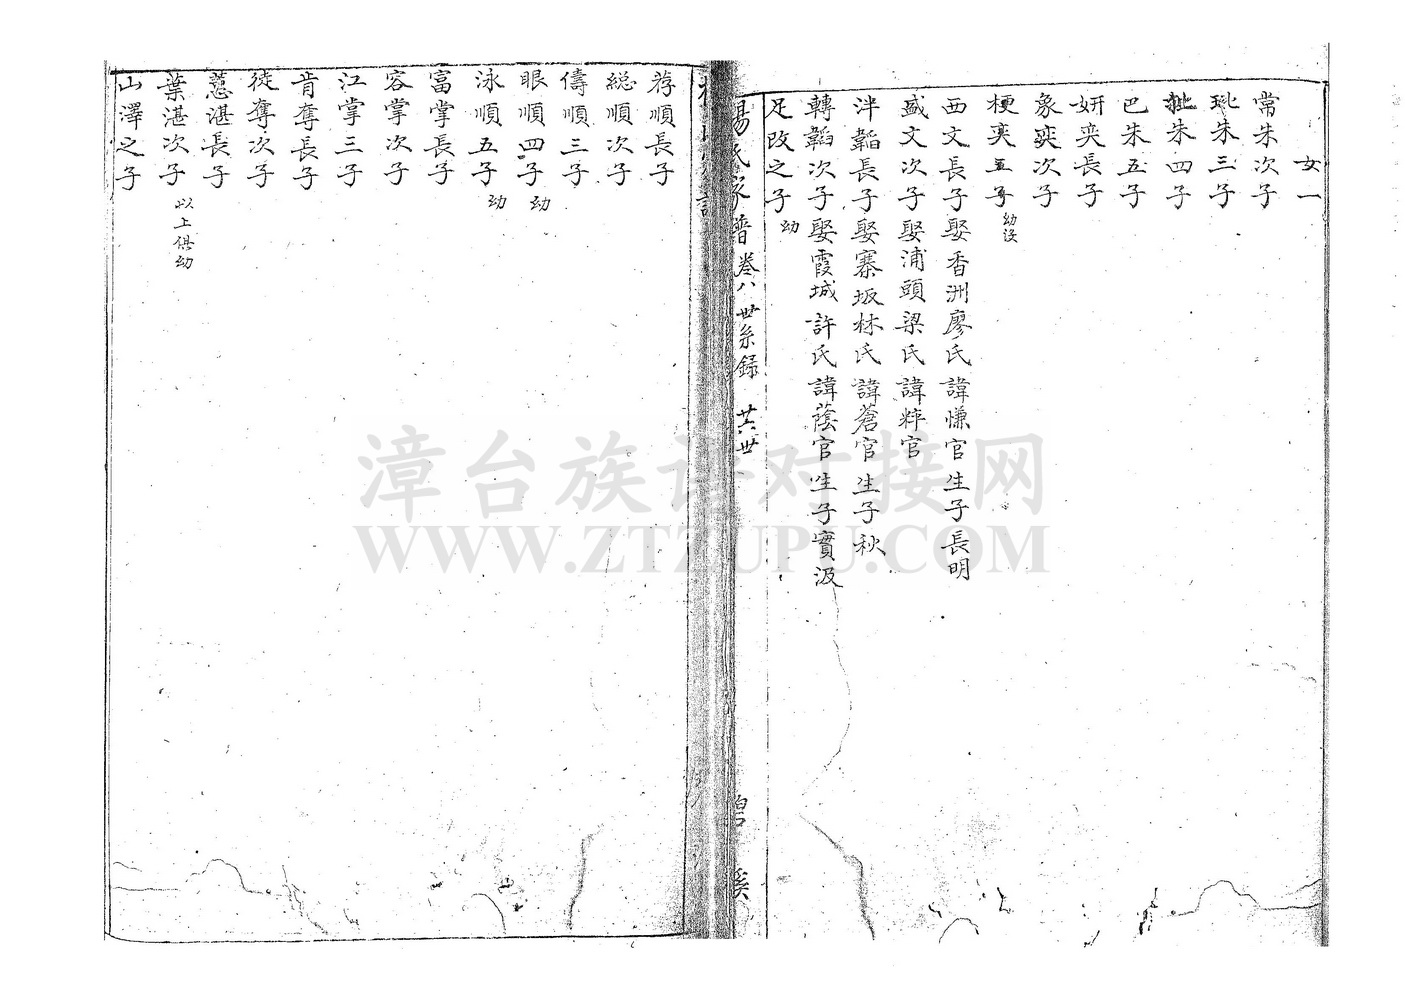 女一
常朱次子
珧朱三子
朱四子
巴朱五子
妍奕長子
象奕次子
梗奕五子 幼没
西文長子娶香洲廖氏諱慊官生子長明
盛文次子娶浦頭梁氏諱粹官
泮韜長子娶寨坂林氏諱蒼官生子秋
轉韜次子娶霞城許氏諱蔭官生子實汲
足改之子 幼
楊氏家譜 卷八 世系録 廿六世 碧溪
荐順長子
総順次子
儔順三子
眼順四子 幼
泳順五子 幼
富掌長子
容掌次子
江掌三子
肯奪長子
徒奪次子
蕙湛長子
葉湛次子 以上俱幼
山澤之子
漳台族谱对接网
WWW.ZTZUPU.COM